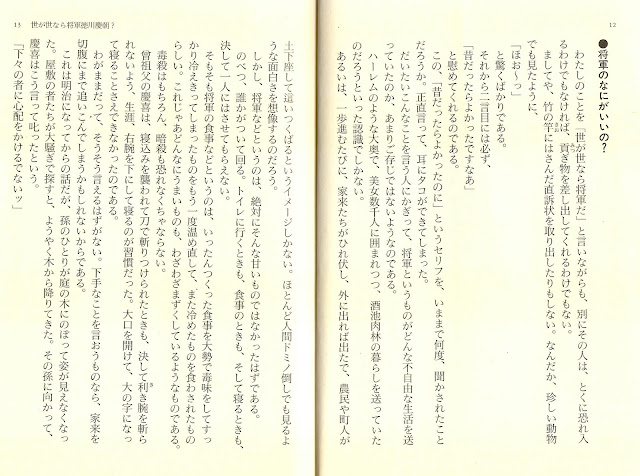 12
●将軍のなにがいいの？
わたしのことを「世が世なら将軍だ」と言いながらも、別にその人は、とくに恐れ入
るわけでもなければ、貢ぎ物を差し出してくれるわけでもない。
ましてや、竹の竿にはさんだ直訴状を取り出したりもしない。なんだか、珍しい動物
でも見たように、
「ほぉ～っ」
と驚くばかりである。
それから二言目には必ず、
「昔だったらよかったですなあ」
と慰めてくれるのである。
この、「昔だったらよかったのに」というセリフを、いままで何度、聞かされたこと
だろうか。正直言って、耳にタコができてしまった。
だいたいこんなことを言う人にかぎって、将軍というものがどんな不自由な生活を送
っていたのか、あまりご存じではないようなのである。
ハーレムのような大奥で、美女数千人に囲まれつつ、酒池肉林の暮らしを送っていた
のだろうといった認識でしかない。
あるいは、一歩進むたびに、家来たちがひれ伏し、外に出れば出たで、農民や町人が
13 世が世なら将軍徳川慶朝？
土下座して這いつくばるというイメージしかない。ほとんど人間ドミノ倒しでも見るよ
うな面白さを想像するのだろう。
しかし、将軍などというのは、絶対にそんな甘いものではなかったはずである。
のべつ、誰かがついて回る。トイレに行くときも、食事のときも、そして寝るときも、
決して一人にはさせてもらえない。
そもそも将軍の食事などというのは、いったんつくった食事を大勢で毒味をしてすっ
かり冷えきってしまったものをもう一度温め直して、また冷めたものを食わされたもの
らしい。これじゃあどんなにうまいものも、わざわざまずくしているようなものである。
毒殺はもちろん、暗殺も恐れなくちゃならない。
曾祖父の慶喜は、寝込みを襲われて刀で斬りつけられたときも、決して利き腕を斬ら
れないよう、生涯、右腕を下にして寝るのが習慣だった。大口を開けて、大の字になっ
て寝ることさえできなかったのである。
わがままだって、そうそう言えるはずがない。下手なことを言おうものなら、家来を
切腹にまで追いこんでしまうかもしれないからである。
これは明治になってからの話だが、孫のひとりが庭の木にのぼって姿が見えなくなっ
た。屋敷の者たちが大騒ぎで探すと、ようやく木から降りてきた。その孫に向かって、
慶喜はこう言って叱ったという。
「下々の者に心配をかけるでないッ」